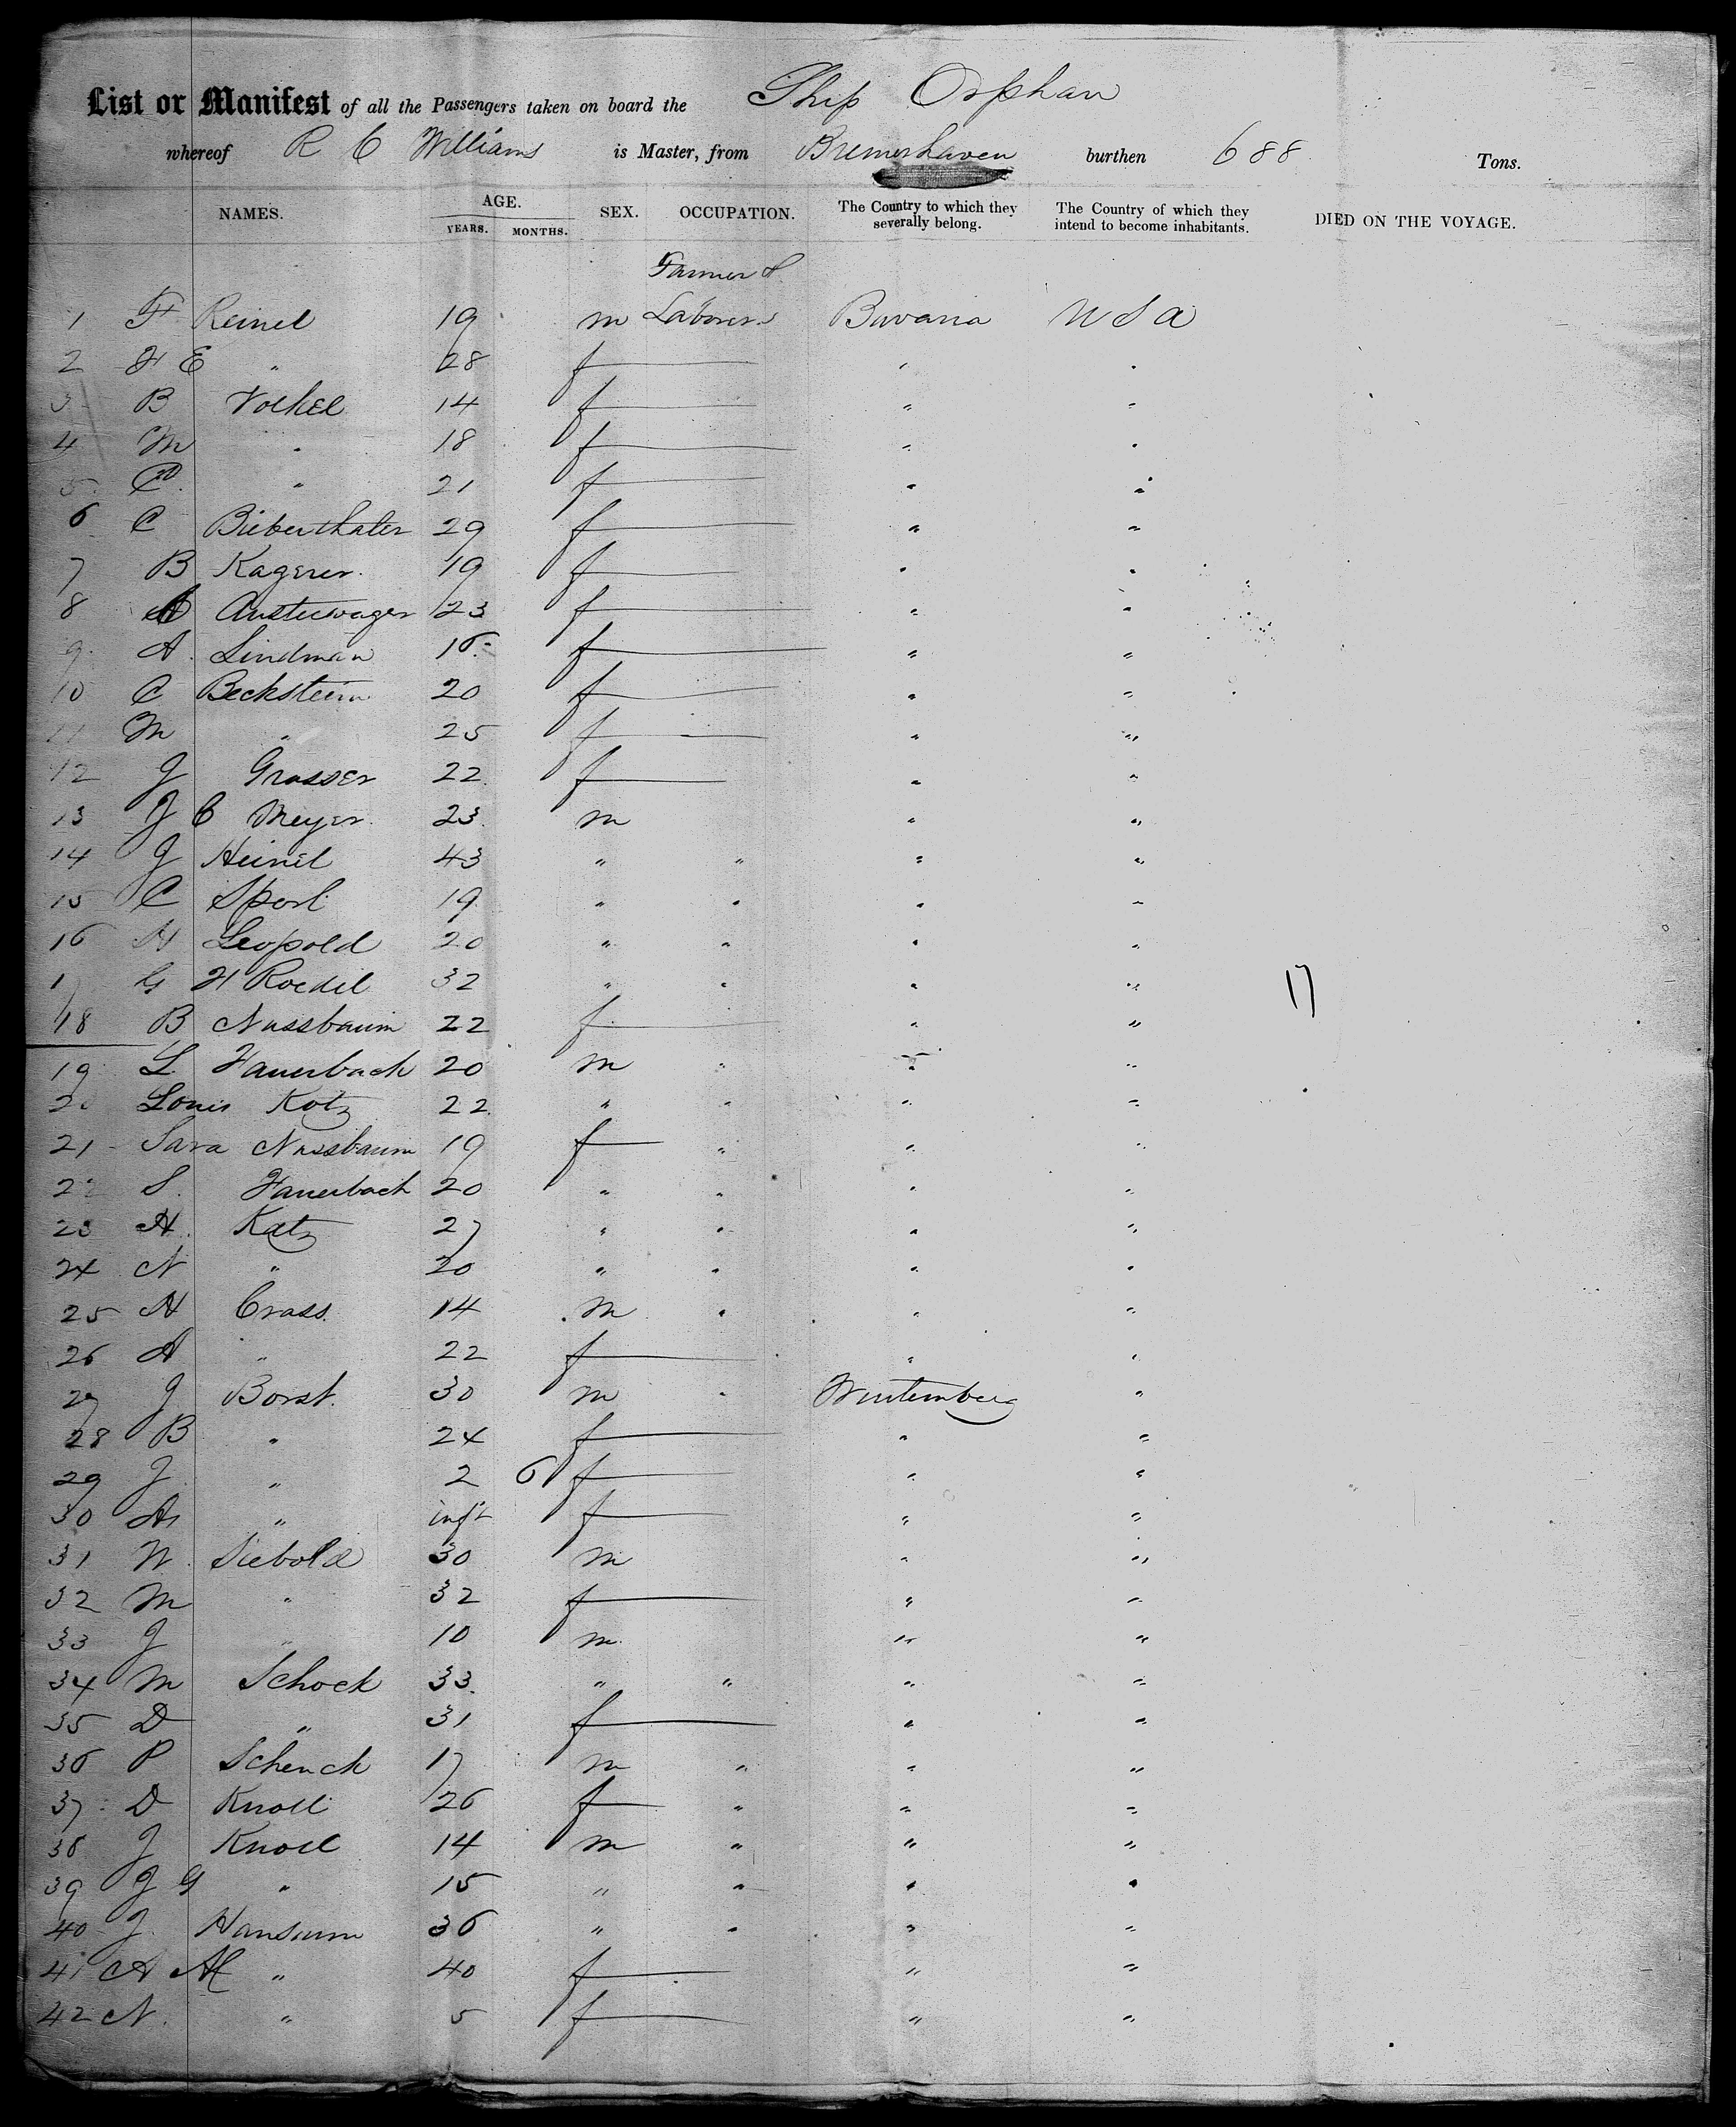 List or Manifest of all the Passengers taken on board the Ship Orphan
whereof R C Williams is Master, from Bremerhaven burthen 688 Tons.
NAMES. AGE. YEARS. MONTHS. SEX. OCCUPATION. The Country to which they severally belong. The Country of which they intend to become inhabitants. DIED ON THE VOYAGE.
Farmer &
1 F Reinel 19 m Laborers Bavaria U S A
2 F E " 28 f " "
3 B Volkel 14 f " "
4 M " 18 f " "
5 C " 21 f " "
6 C Bieberthaler 29 f " "
7 B Kagerer 19 f " "
8 A 23 f " "
9 A Lindman 16 f " "
10 C Beckstein 20 f " "
11 M " 25 f " "
12 J Grasser 22 f " "
13 J C Meyer 23 m " "
14 J Heinel 43 " " " "
15 C Sporl 19 " " " "
16 H Leopold 20 " " " "
17 G H Roedel 32 " " " " 17
18 B Nussbaum 22 f " "
19 L Hauerbach 20 m " " "
20 Louis Kotz 22 " " " "
21 Sara Nussbaum 19 f " " "
22 S Hauerbach 20 " " " "
23 A Katz 27 " " " "
24 N " 20 " " " "
25 H Crass 14 m " " "
26 A " 22 f " "
27 J Borst 30 m " Wurtemberg "
28 B " 24 f " "
29 J " 2 6 f " "
30 A " inft f " "
31 W Siebold 30 m " "
32 M " 32 f " "
33 J " 10 m " "
34 M Schock 33 " " " "
35 D " 31 f " "
36 P Schenck 17 m " " "
37 D Knoll 26 f " " "
38 J Knoll 14 m " " "
39 J G " 15 " " " "
40 J Hansum 36 " " " "
41 A M " 40 f " "
42 N " 5 f " "